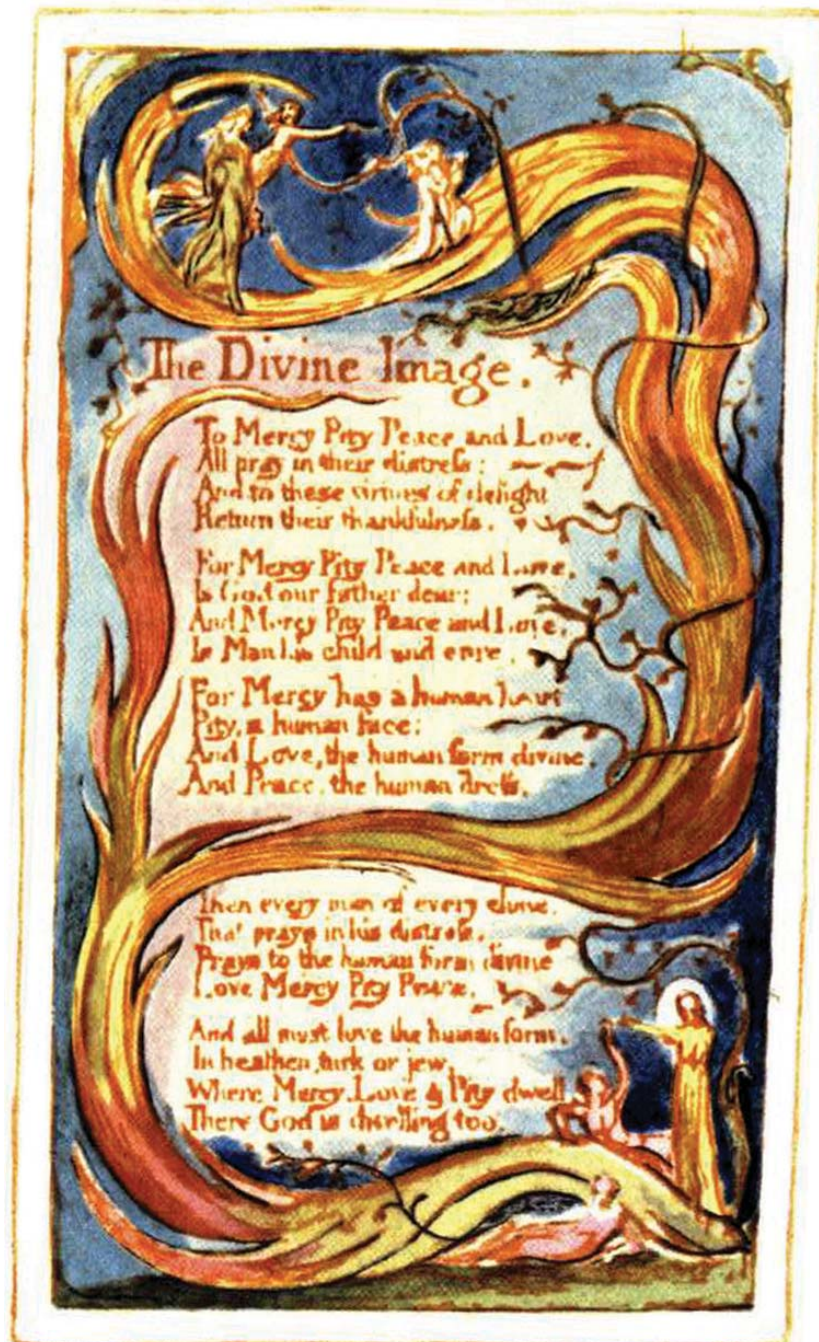 The Divine Image.
To Mercy Pity Peace and Love.
All pray in their distress:
And to these virtues of delight
Return their thankfulness.
For Mercy Pity Peace and Love,
Is God our father dear:
And Mercy Pity Peace and Love,
Is Man his child and care.
For Mercy has a human heart
Pity, a human face:
And Love, the human form divine,
And Peace, the human dress.
Then every man of every clime,
That prays in his distress,
Prays to the human form divine
Love Mercy Pity Peace.
And all must love the human form,
In heathen, turk or jew.
Where Mercy, Love & Pity dwell
There God is dwelling too